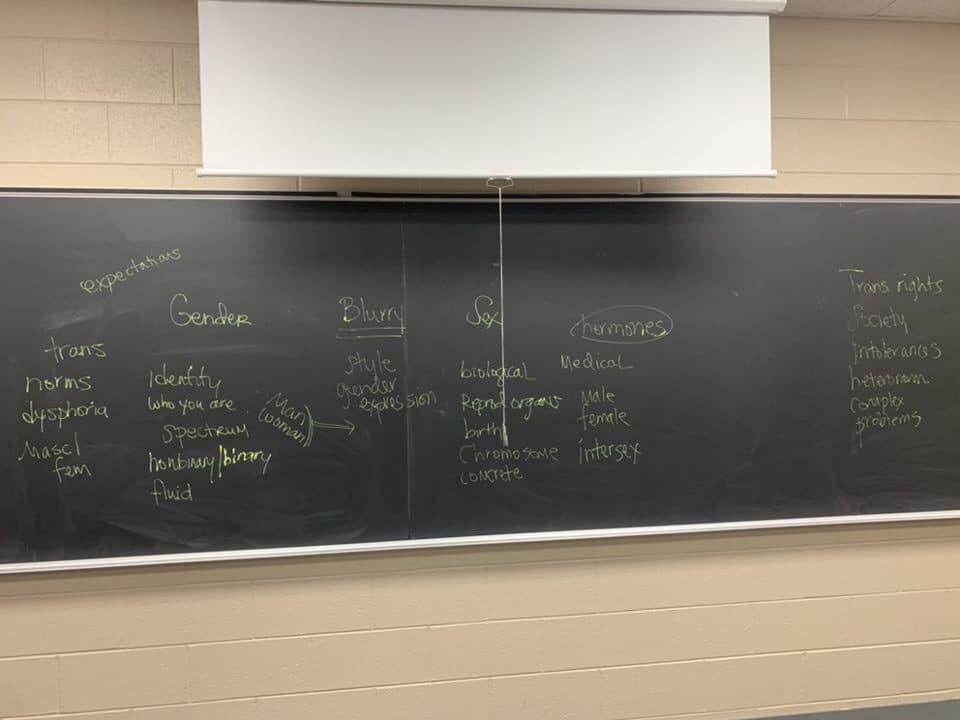 expectations
Gender
trans
norms
dysphoria
Mascl
fem
Identity
who you are
spectrum
nonbinary/binary
fluid
Man
(woman)
Blurry
style
gender
expression
Sex
biological
Reprod organs
birth
Chromosome
concrete
hormones
Medical
Male
female
intersex
Trans rights
Society
intolerances
heteronorm
complex
problems